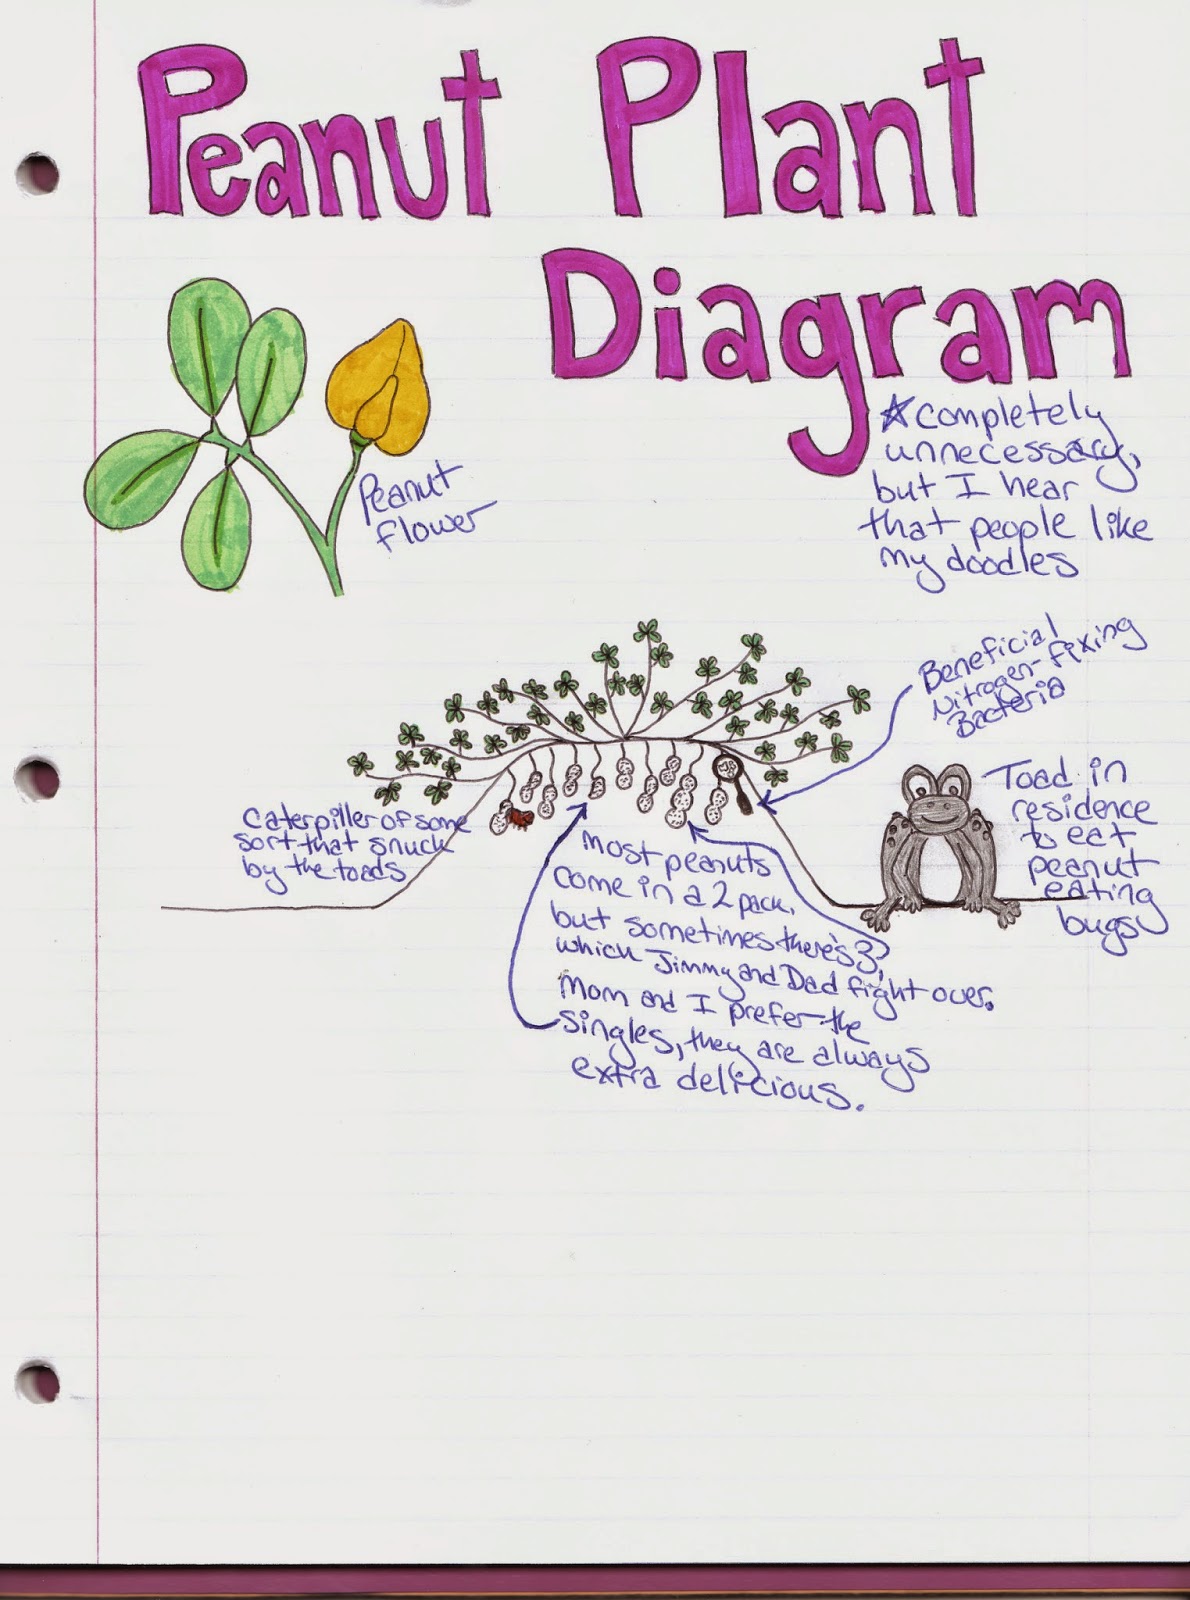 Peanut Plant
Diagram
☆completely
unnecessary,
but I hear
that people like
my doodles
Peanut
flower
Beneficial
Nitrogen-fixing
Bacteria
Toad in
residence
to eat
peanut
eating
bugs
Caterpiller of some
sort that snuck
by the toads
Most peanuts
come in a 2 pack,
but sometimes there's 3,
which Jimmy and Dad fight over.
Mom and I prefer the
singles, they are always
extra delicious.